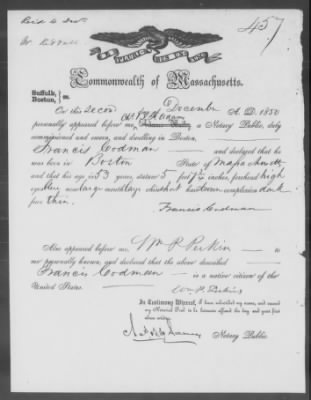 457
E PLURIBUS UNUM
Commonwealth of Massachusetts.
Suffolk,
Boston,
On this second December A. D. 1850
personally appeared before me, a Notary Public, duly
commissioned and sworn, and dwelling in Boston,
Francis Codman and declared that he
was born in Boston State of
and that his age is 53 years, stature 5 feet 7½ inches, forehead high
nose large mouth large chin hair brown complexion dark
face thin.
Francis Codman
Also appeared before me, Wm P. Perkins
to me personally known, and declared that the above described
Francis Codman is a native citizen of the
United States.
Wm. P. Perkins
In Testimony Whereof, I have subscribed my name, and caused
my Notarial Seal to be hereunto affixed the day and year first
above written.
Notary Public.